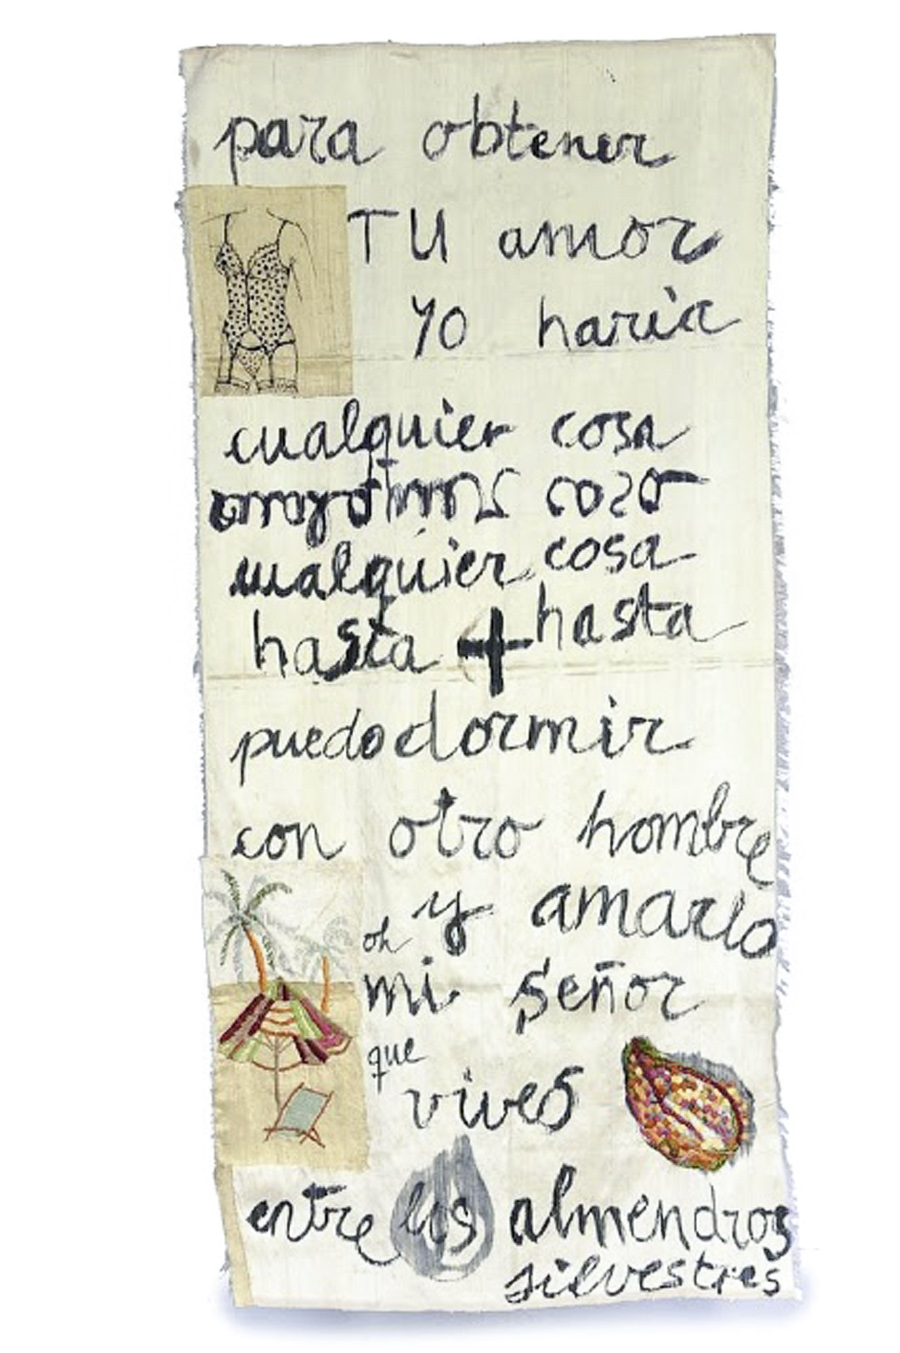 para obtener
TU amor
yo haria
cualquier cosa
cosa
cualquier cosa
hasta + hasta
puedo dormir
con otro hombre
y amarlo
oh
mi señor
que
vives
entre los almendros
silvestres